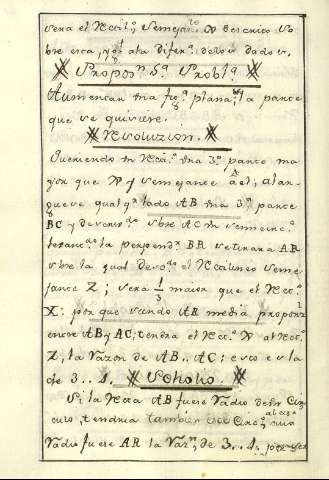 sera el Rectil.º Semejan.te W descrito So
bre esta, y si a la difer.ª de los dados.
Propos.n 5.ª Probl.ª
Aumentar una fig.ª plana, la parte
que se quisiere.
Resoluzion.
Queriendo un Rect.º una 3.ª parte ma
yor que W y semejante a el; alar
guese qualq.ª lado AB una 3.ª parte
BC y descrivi.do sobre AC un semicirc.º
levantan.do la perpend.r BR se tirara AR
sobre la qual descri.do el Rectilineo seme
jante Z; sera 1/3 maior que el Rect.º
X: por que siendo AR media proporz.l
entre AB y AC; tendra el Rect.º W al Rect.º
Z, la razon de AB.. AC: esto es la
de 3.. 4.
Scholio.
Si la Recta AB fuere radio de un Cir
culo, tendria tambien ese Circ.º, al circ.º cuio
radio fuere AR la Raz.n, de 3.. 4.